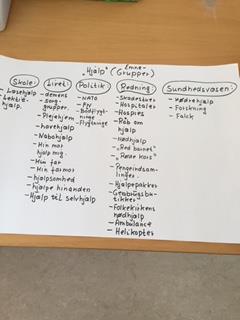 Emne-
"Hjælp" (Grupper)
Skole:
- Læsehjælp
- Lektie-
hjælp.
Livet:
- demens
- Sorg-
grupper.
- Plejehjem
- havehjælp
- Nabohjælp
- Min mor
hjalp mig.
- Min far
- Min farmor
- hjælpsomhed
- hjælpe hinanden
- Hjælp til selvhjælp
Politik
- NATO
- FN
- Bådflygt-
ninge
- Flygtninge
Redning:
- Skadestuer
- Hospitaler
- Hospies
- Råb om
hjælp
- nødhjælp
- "Red barnet"
- "Røde Kors"
- Pengeindsam-
linger.
- Hjælpepakker
- Genbrugsbu-
tikker
- Folkekirkens
nødhjælp
- Ambulance
- Helikopter
Sundhedsvæsen:
- Mødrehjælp
- Forskning
- Falck